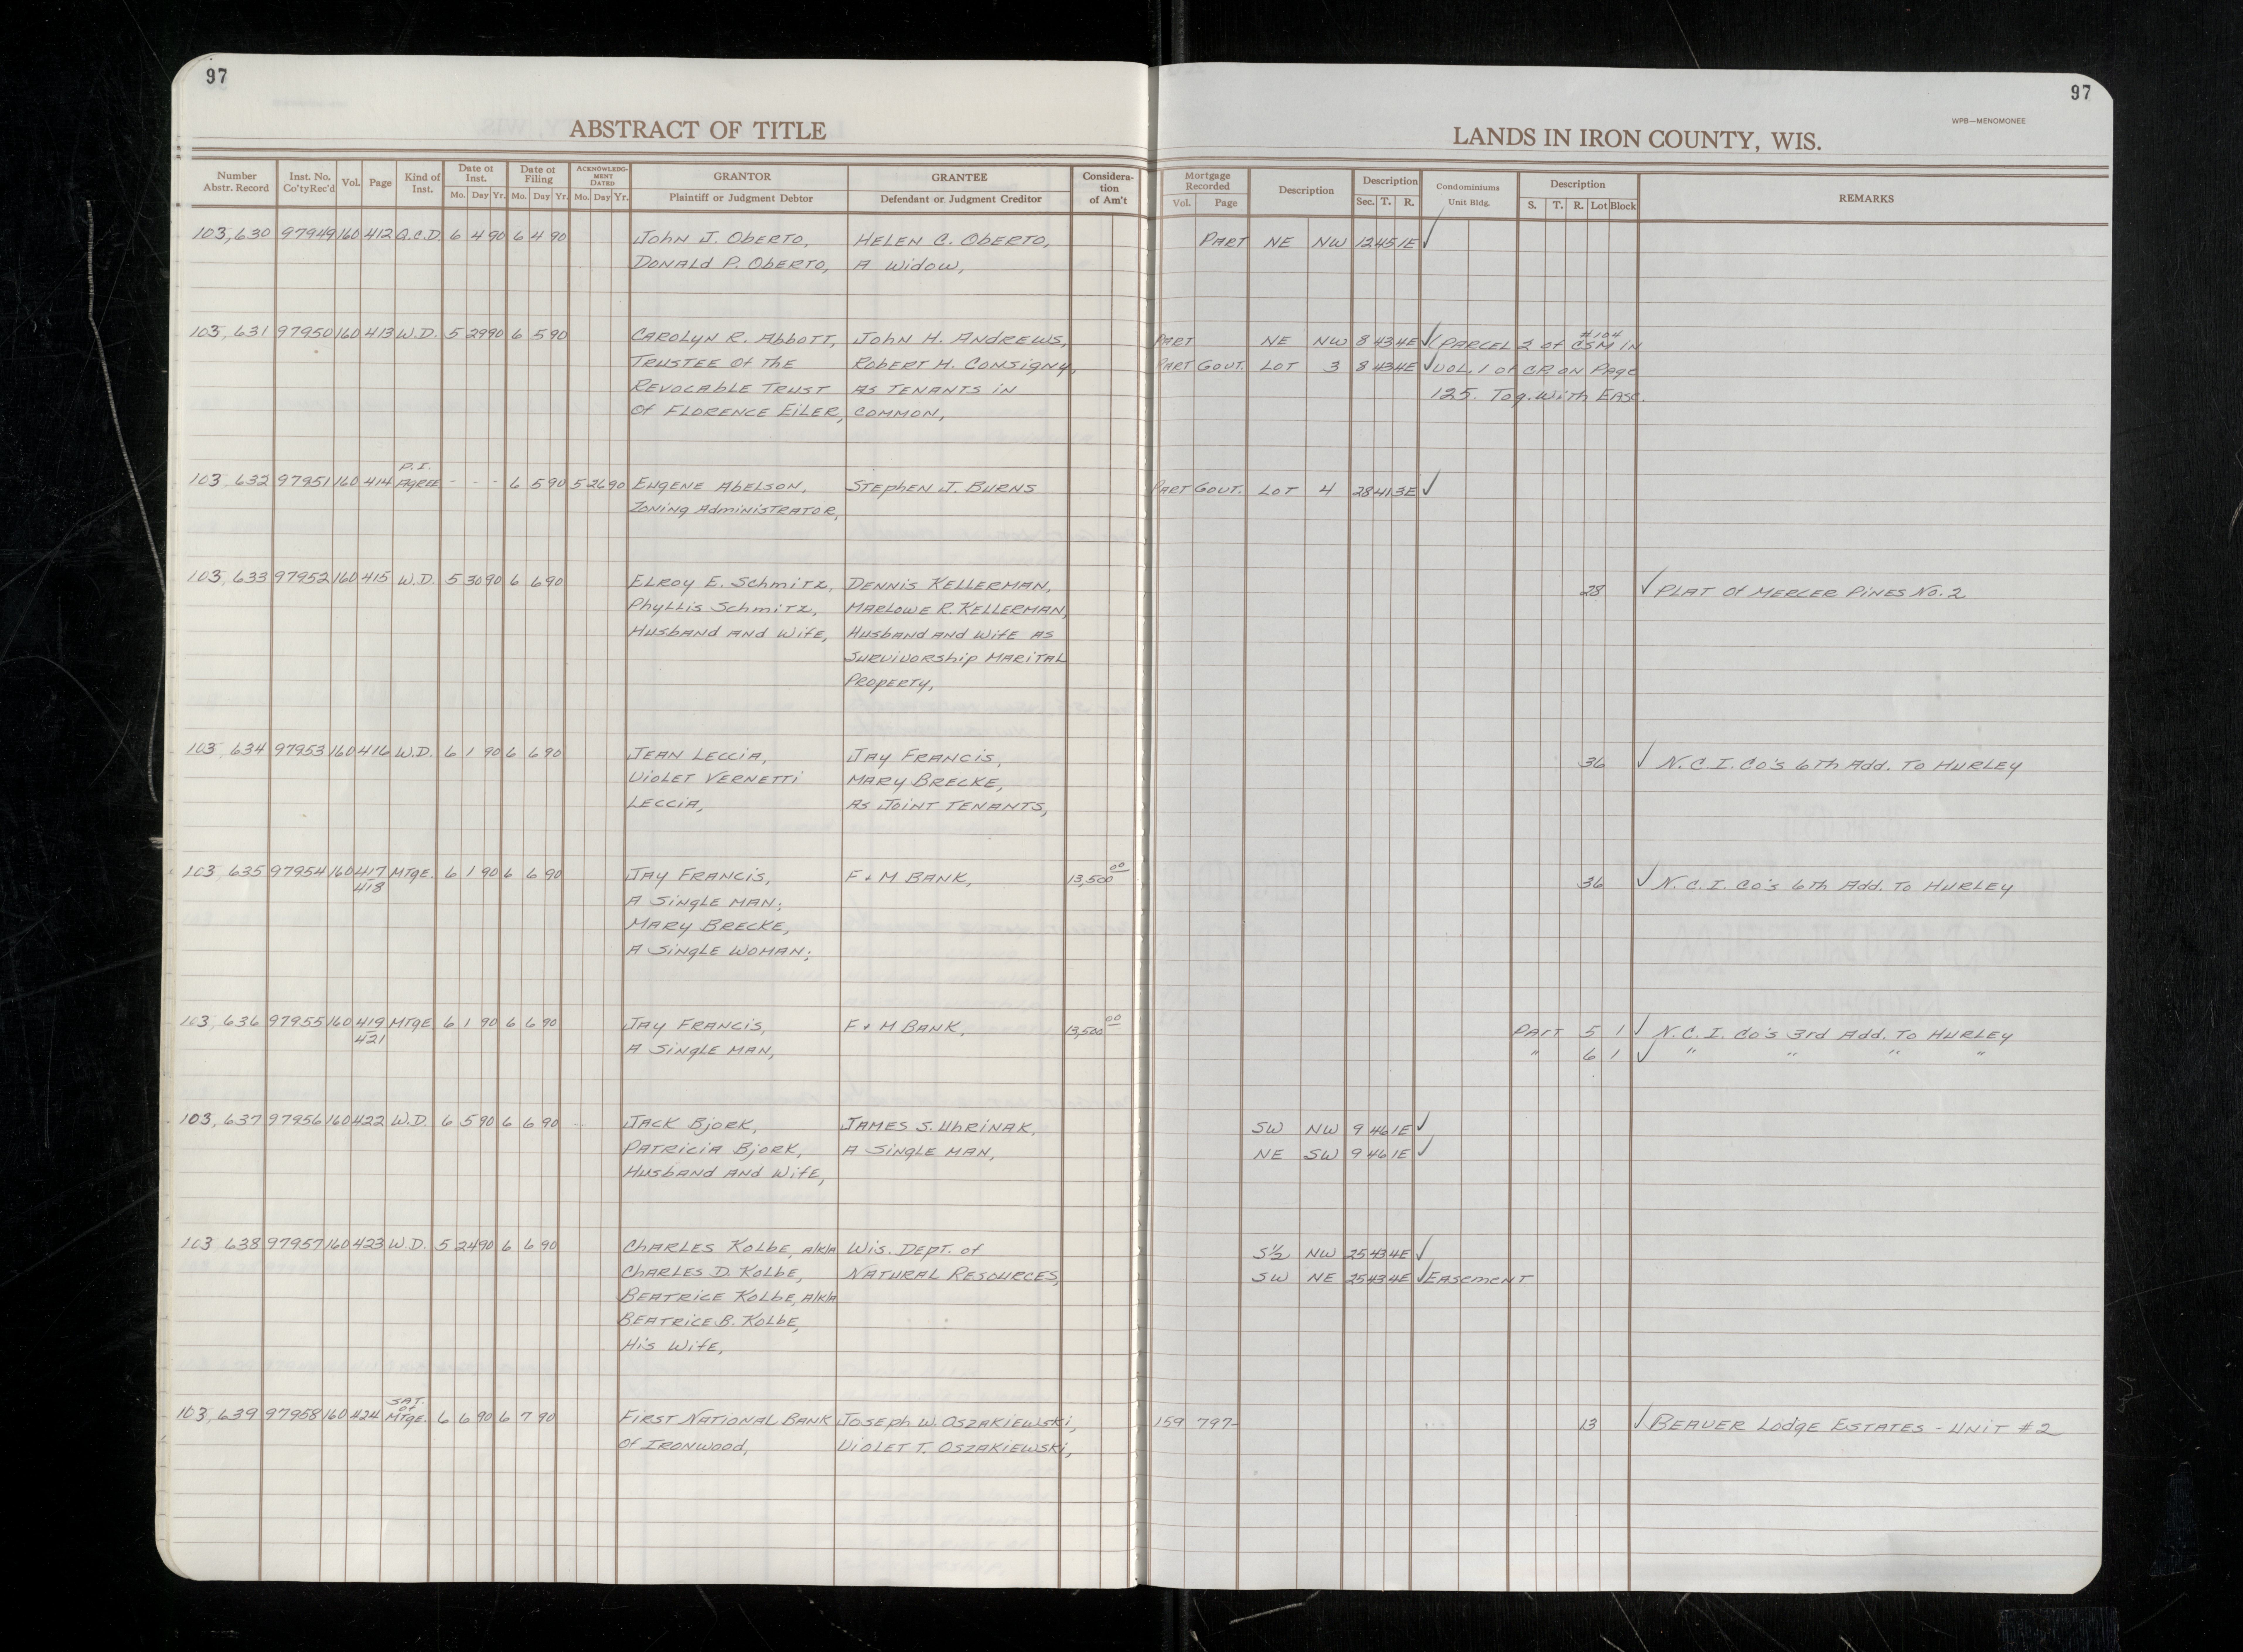 97
97
ABSTRACT OF TITLE
LANDS IN IRON COUNTY, WIS.
WPB—MENOMONEE
Number Abstr. Record | Inst. No. Co'tyRec'd | Vol. | Page | Kind of Inst. | Date of Inst. Mo. Day Yr. | Date of Filing Mo. Day Yr. | ACKNOWLEDGMENT DATED Mo. Day Yr. | GRANTOR Plaintiff or Judgment Debtor | GRANTEE Defendant or Judgment Creditor | Consideration of Am't | Mortgage Recorded Vol. Page | Description | Description Sec. T. R. | Condominiums Unit Bldg. | Description S. T. R. Lot Block | REMARKS
103,630 97949 160 412 Q.C.D. 6 4 90 6 4 90 John J. Oberto, HELEN C. Oberto, PART NE NW 12 45 1E ✓
DONALD P. Oberto, A Widow,
103,631 97950 160 413 W.D. 5 29 90 6 5 90 CAROLYN R. Abbott, John H. ANDREWS, PART NE NW 8 43 4E ✓ (PARCEL 2 of #104 CSM IN
TRUSTEE Of The Robert H. Consigny, PART GOVT. LOT 3 8 43 4E ✓ VOL. 1 of CR ON PAGE
REVOCABLE TRUST AS TENANTS IN 125. Tog. With EASE.
Of FLORENCE EILER, COMMON,
103,632 97951 160 414 P.I. AGREE - - - 6 5 90 5 26 90 EUGENE AbELSON, STEPHEN J. BURNS PART GOVT. LOT 4 28 41 3E ✓
Zoning Administrator,
103,633 97952 160 415 W.D. 5 30 90 6 6 90 ELROY E. Schmitz, DENNIS KELLERMAN, 28 ✓ PLAT Of MERCER PINES No. 2
Phyllis Schmitz, MARLOWE R. KELLERMAN,
Husband and Wife, Husband and Wife as
Survivorship MARITAL
PROPERTY,
103,634 97953 160 416 W.D. 6 1 90 6 6 90 JEAN LECCIA, JAY FRANCIS, 36 ✓ N.C.I. Co's 6Th Add. To HURLEY
VIOLET VERNETTI MARY BRECKE,
LECCIA, As JOINT TENANTS,
103,635 97954 160 417 418 MTGE. 6 1 90 6 6 90 JAY FRANCIS, F & M BANK, 13,500 00 36 ✓ N.C.I. Co's 6th Add. To HURLEY
A SINGLE MAN;
MARY BRECKE,
A SINGLE WOMAN;
103,636 97955 160 419 421 MTGE 6 1 90 6 6 90 JAY FRANCIS, F & M BANK, 13,500 00 PART 5 1 ✓ N.C.I. Co's 3rd Add. To HURLEY
A SINGLE MAN, " 6 1 ✓ " " " "
103,637 97956 160 422 W.D. 6 5 90 6 6 90 JACK Bjork, JAMES S. UhRINAK, SW NW 9 46 1E ✓
PATRICIA BjORK, A SINGLE MAN, NE SW 9 46 1E ✓
Husband and Wife,
103 638 97957 160 423 W.D. 5 24 90 6 6 90 CHARLES KOLBE, A/K/A Wis. Dept. of S½ NW 25 43 4E ✓
CHARLES D. KOLBE, NATURAL RESOURCES, SW NE 25 43 4E ✓ EASEMENT
BEATRICE KOLBE, A/K/A
BEATRICE B. KOLBE,
His Wife,
103,639 97958 160 424 SAT. of MTGE. 6 6 90 6 7 90 FIRST NATIONAL BANK JOSEPH W. OSZAKIEWSKI, 159 797 13 ✓ BEAVER LODGE ESTATES - UNIT #2
Of IRONWOOD, VIOLET T. OSZAKIEWSKI,